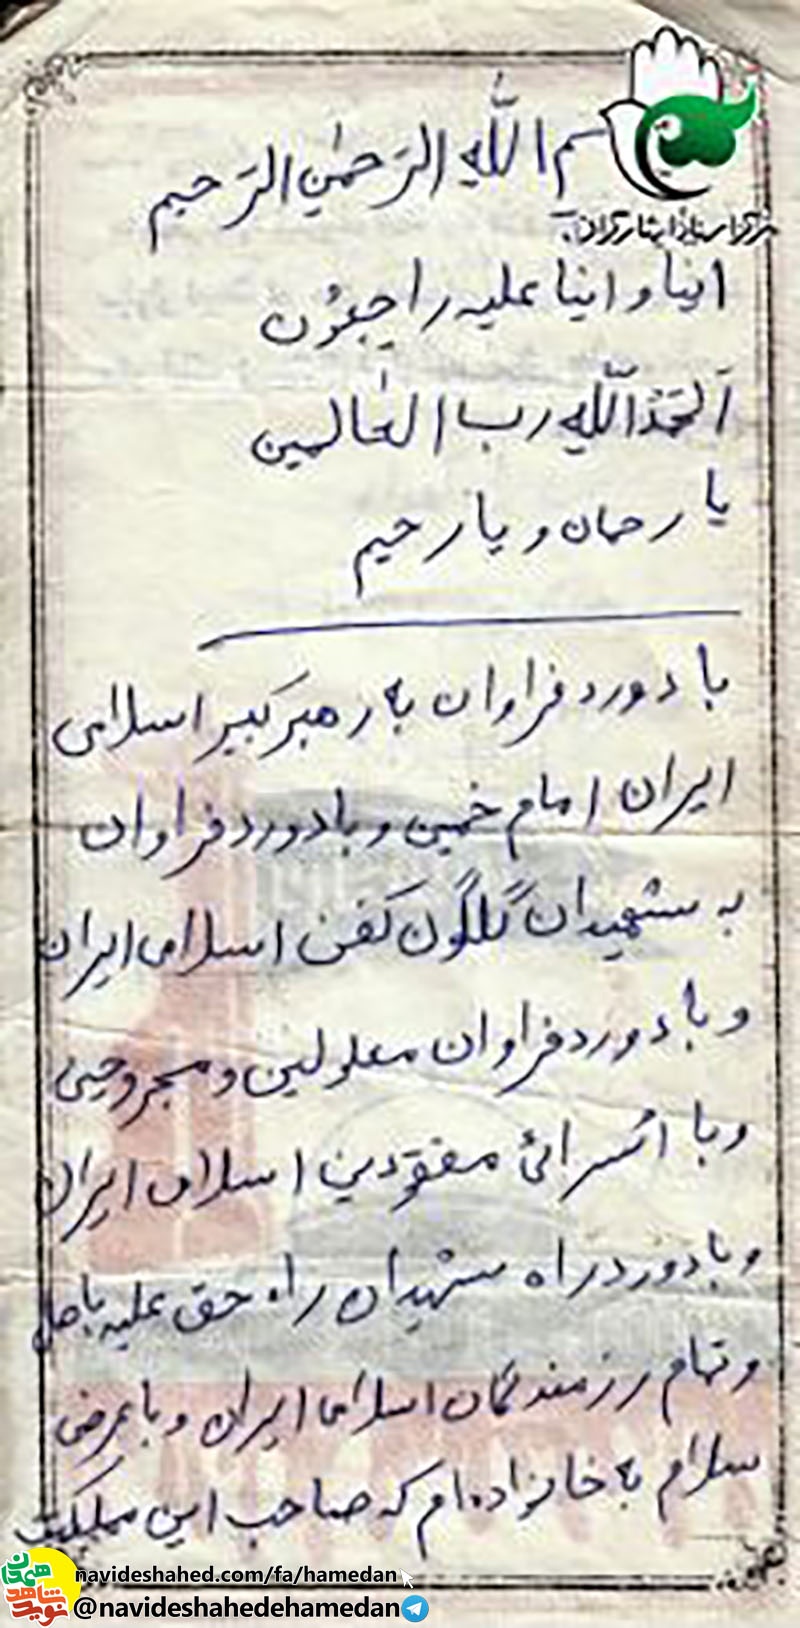 سم اللّه الرّحمٰن الرّحیم
مرکز اسناد ایثارگران
انیا و اینا علیه راجعُون
اَلحَمدُ اللّه رب العٰالمین
یا رحمان و یا رحیم
با دورد فراوان به رهبر کبیر اسلامی
ایران امام خمین و با دورد فراوان
به شهیدان گلگون کفن اسلامی ایران
و با دورد فراوان معلولین و مجروحین
و با اُسرائ مفقودین اسلامی ایران
و با دورد راه شهیدان راه حق علیه باطل
و تمام رزمندگان اسلامی ایران و با عرض
سلام به خانواده‌ام که صاحب این مملکت
navideshahed.com/fa/hamedan
نوید شاهد همدان
@navideshahedehamedan